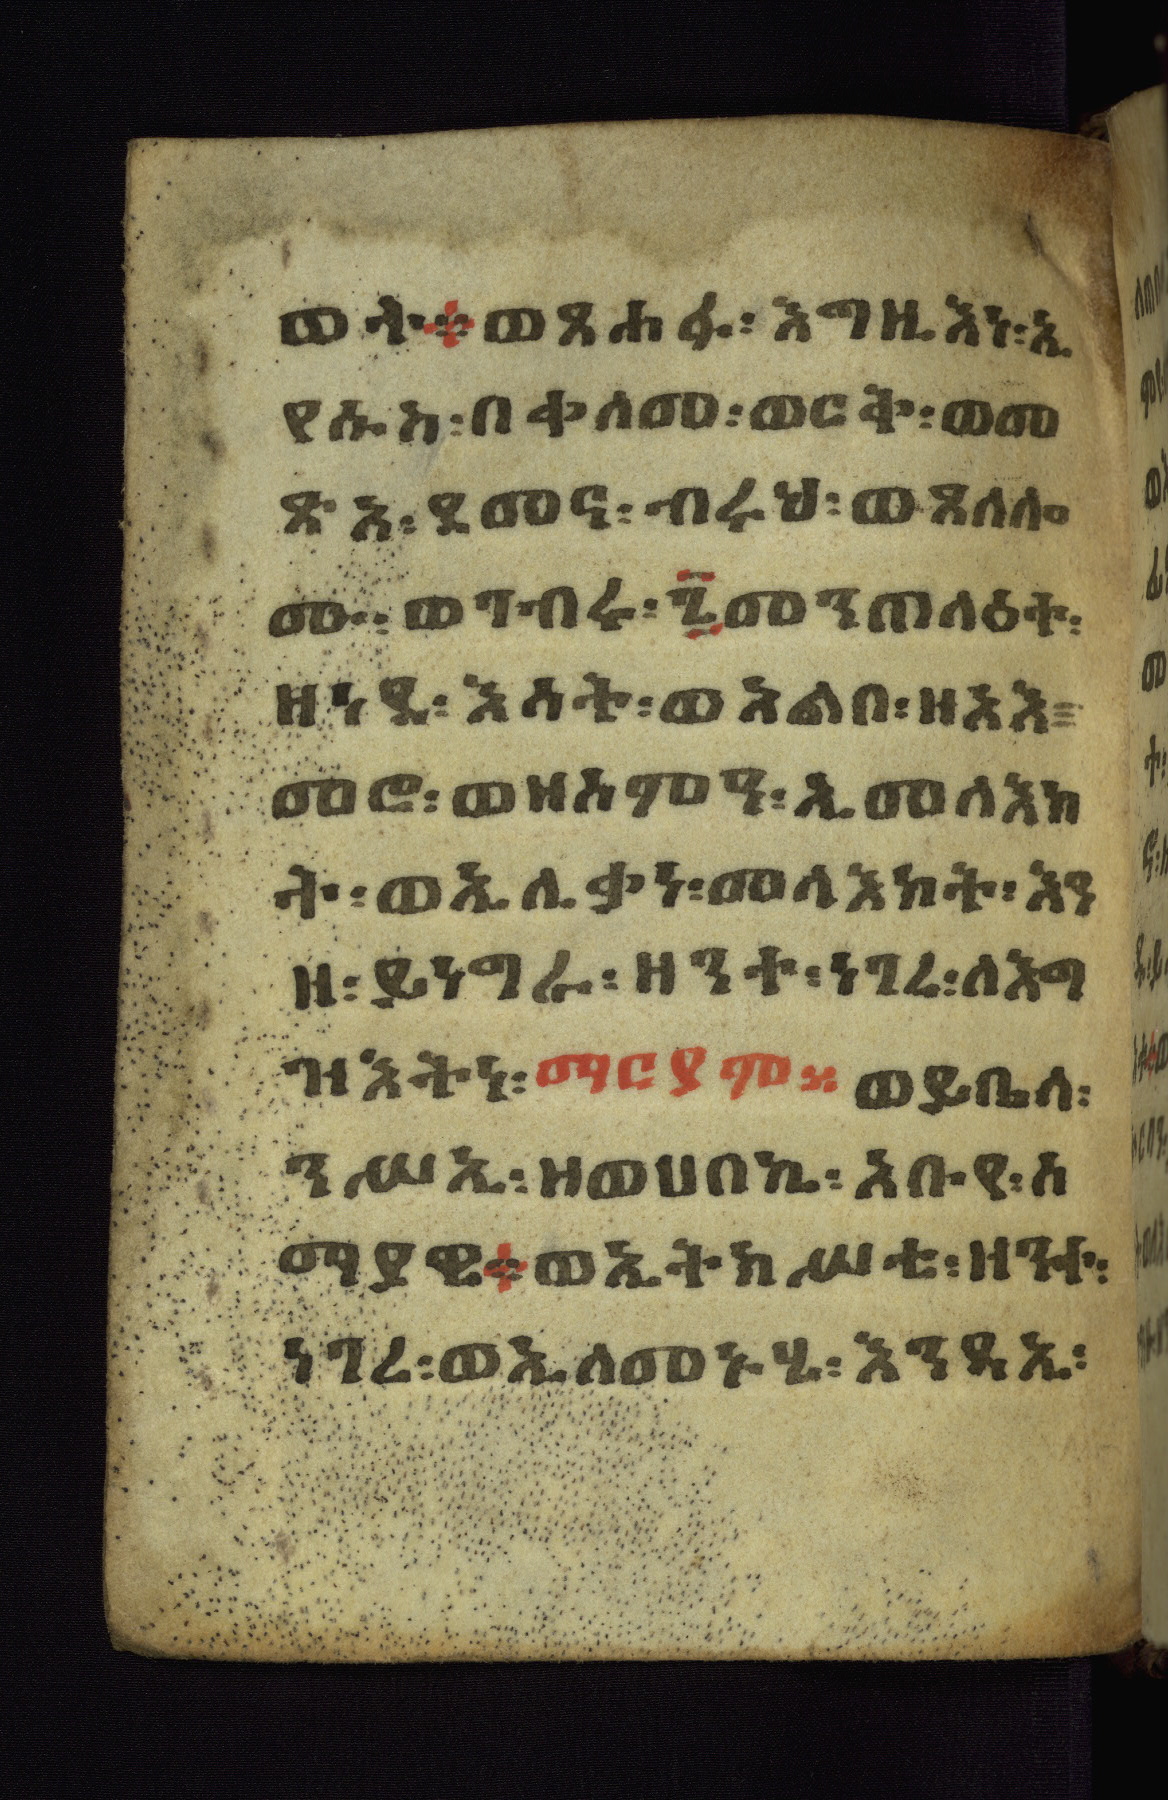 ወት፨ወጸሐፉ፡እግዚእነ፡ኢ
የሱስ፡በቀለመ፡ወርቅ፡ወመ
ጽአ፡ደመና፡ብሩህ፡ወጸለሎ
ሙ፡ወገብሩ፡፯መንጠላዕተ፡
ዘነደ፡እሳት፡ወአልቦ፡ዘአእ
መሮ፡ወዘሰምዓ፡ኢመላእክ
ት፡ወኢሊቃነ፡መላእክት፡እን
ዘ፡ይነግራ፡ዘንተ፡ነገረ፡ለእግ
ዝእትነ፡ማርያም፨ወይቤላ፡
ንሥኢ፡ዘወሀበኪ፡አቡየ፡ሰ
ማያዊ፨ወኢትክሥቲ፡ዘንተ፡
ነገረ፡ወኢለመኑሂ፡እንዳኢ፡